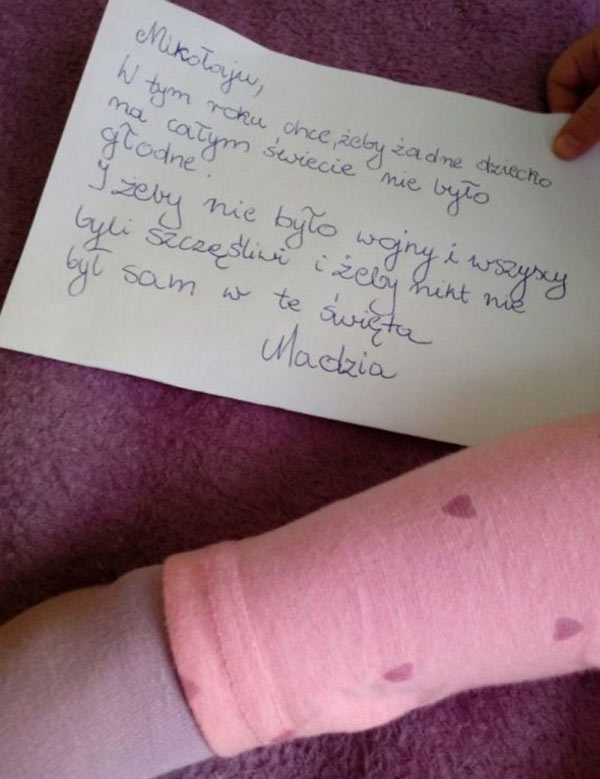 Mikołaju,
W tym roku, chcę, żeby żadne dziecko
na całym świecie nie było
głodne.
I żeby nie było wojny i wszyscy
byli szczęśliwi i żeby nikt nie
był sam w te święta
Madzia